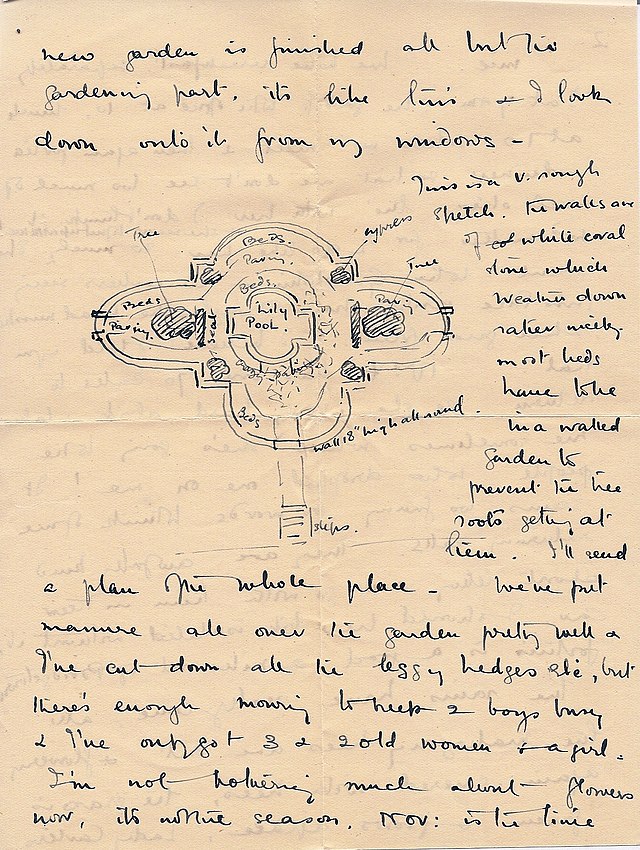 new garden is finished all but the
gardening part. its like this & I look
down onto it from my windows -
This is a v. rough
sketch. The walks are
of white coral
stone which
weather down
rather nicely.
most beds
have to be
in a walled
garden to
prevent the tree
roots getting at
them. I'll send
Tree
cypress
Tree
Beds.
Paving.
Beds.
Beds
Paving.
Seat
Lily
Pool.
Paving
crazy paving
Beds
wall 18" high all round.
steps.
a plan of the whole place - We've put
manure all over the garden pretty well &
I've cut down all the leggy hedges etc, but
there's enough mowing to keep 2 boys busy
& I've only got 3 & 2 old women & a girl.
I'm not bothering much about flowers
now, its not the season. Nov: is the time